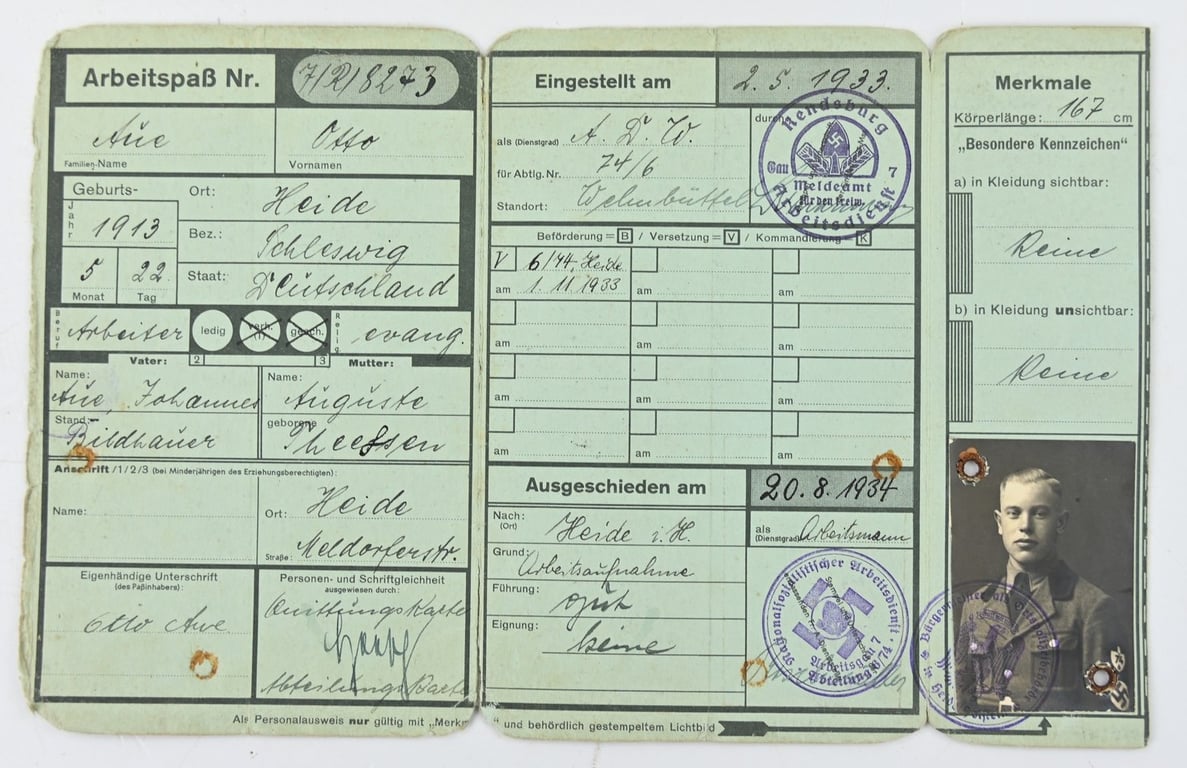 Arbeitspaß Nr. 7/R/8273
Aue Otto
Familien-Name Vornamen
Geburts- Ort: Heide
Jahr 1913 Bez.: Schleswig
5 22. Staat: Deutschland
Monat Tag
Beruf Arbeiter ledig verh. gesch. Relig. evang.
Vater: 2 3 Mutter:
Name: Aue, Johannes Name: Auguste
Stand: Bildhauer geborene Theessen
Anschrift/1/2/3 (bei Minderjährigen des Erziehungsberechtigten):
Name: Ort: Heide
Straße: Meldorferstr.
Eigenhändige Unterschrift
(des Paßinhabers):
Otto Aue.
Personen- und Schriftgleichheit
ausgewiesen durch:
Quittungskarte
Abteilungskarte
Als Personalausweis nur gültig mit „Merkm
Eingestellt am 2. 5. 1933.
als (Dienstgrad) A. D. W. durch
für Abtlg. Nr. 74/6
Standort: Welmbüttel
Rendsburg
Gau 7
Meldeamt
für den freiw.
Arbeitsdienst
Beförderung = B / Versetzung = V / Kommandierung = K
V 6/74, Heide
am 1. 11. 1933 am am
am am am
am am am
am am am
Ausgeschieden am 20. 8. 1934
Nach: (Ort) Heide i. H. als (Dienstgrad) Arbeitsmann
Grund: Arbeitsaufnahme
Führung: gut
Eignung: keine
Nationalsozialistischer Arbeitsdienst
Arbeitsgau 7
Abteilung 6/74
" und behördlich gestempeltem Lichtbild
Merkmale
Körperlänge: 167 cm
„Besondere Kennzeichen"
a) in Kleidung sichtbar:
Keine
b) in Kleidung unsichtbar:
Keine